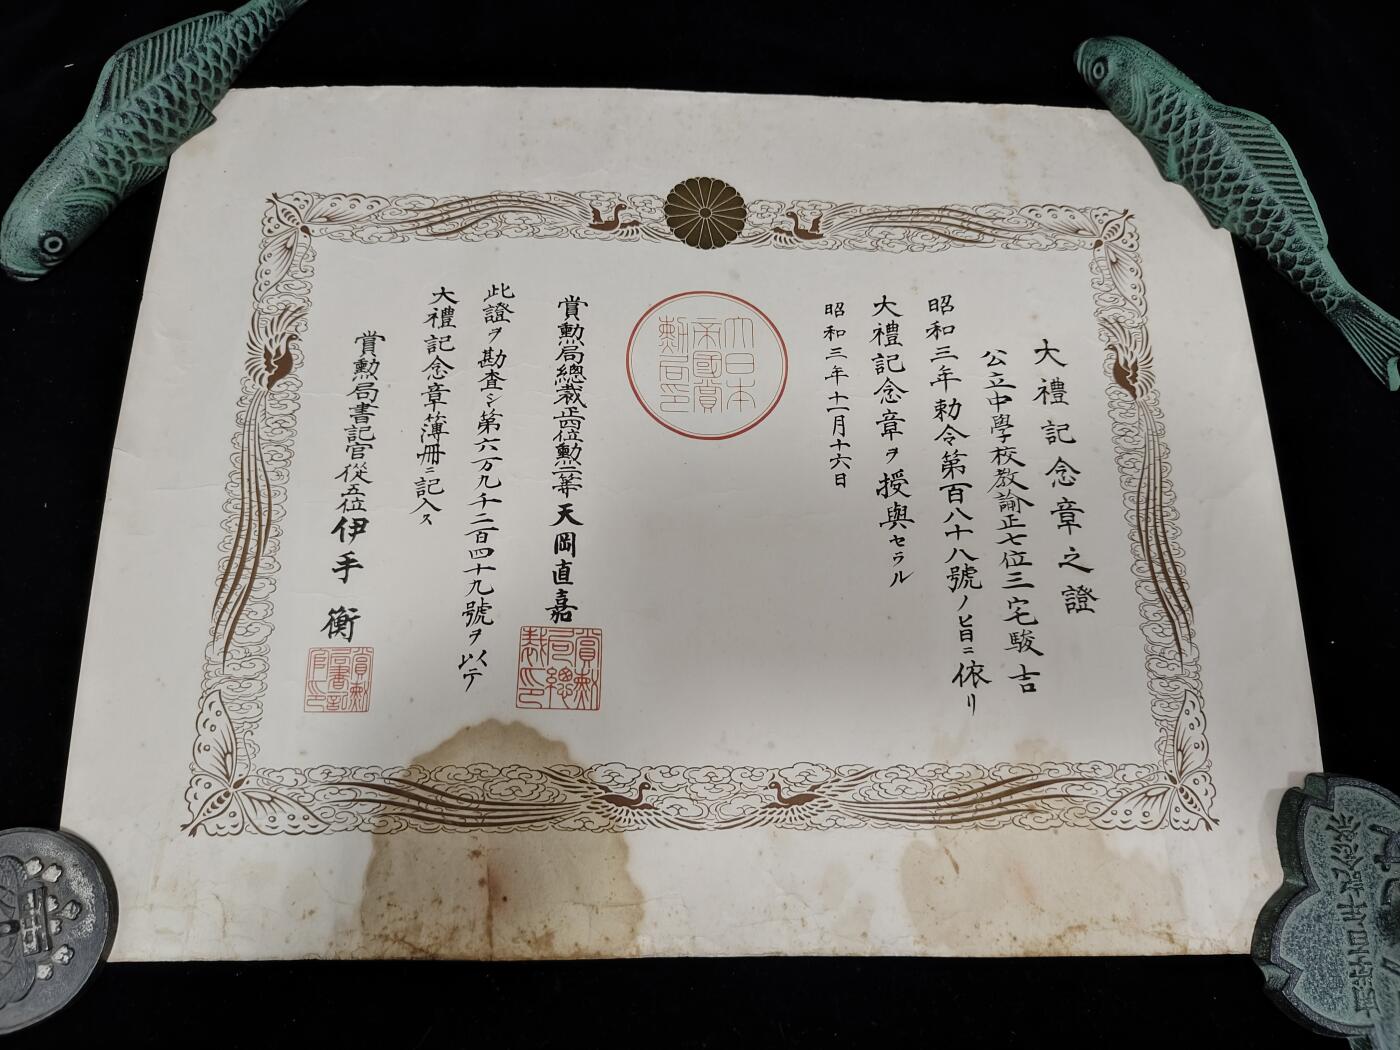 大禮記念章之證
公立中學校教諭正七位三宅駿吉
昭和三年勅令第百八十八號ノ旨ニ依リ
大禮記念章ヲ授與セラル
昭和三年十一月十六日
大日本
帝國賞
勲局印
賞勲局總裁正四位勲二等天岡直嘉
賞勲
局總
裁印
此證ヲ勘査シ第六万九千二百四十九號ヲ以テ
大禮記念章簿冊ニ記入ス
賞勲局書記官從五位伊手衡
賞勲
局書記
官印